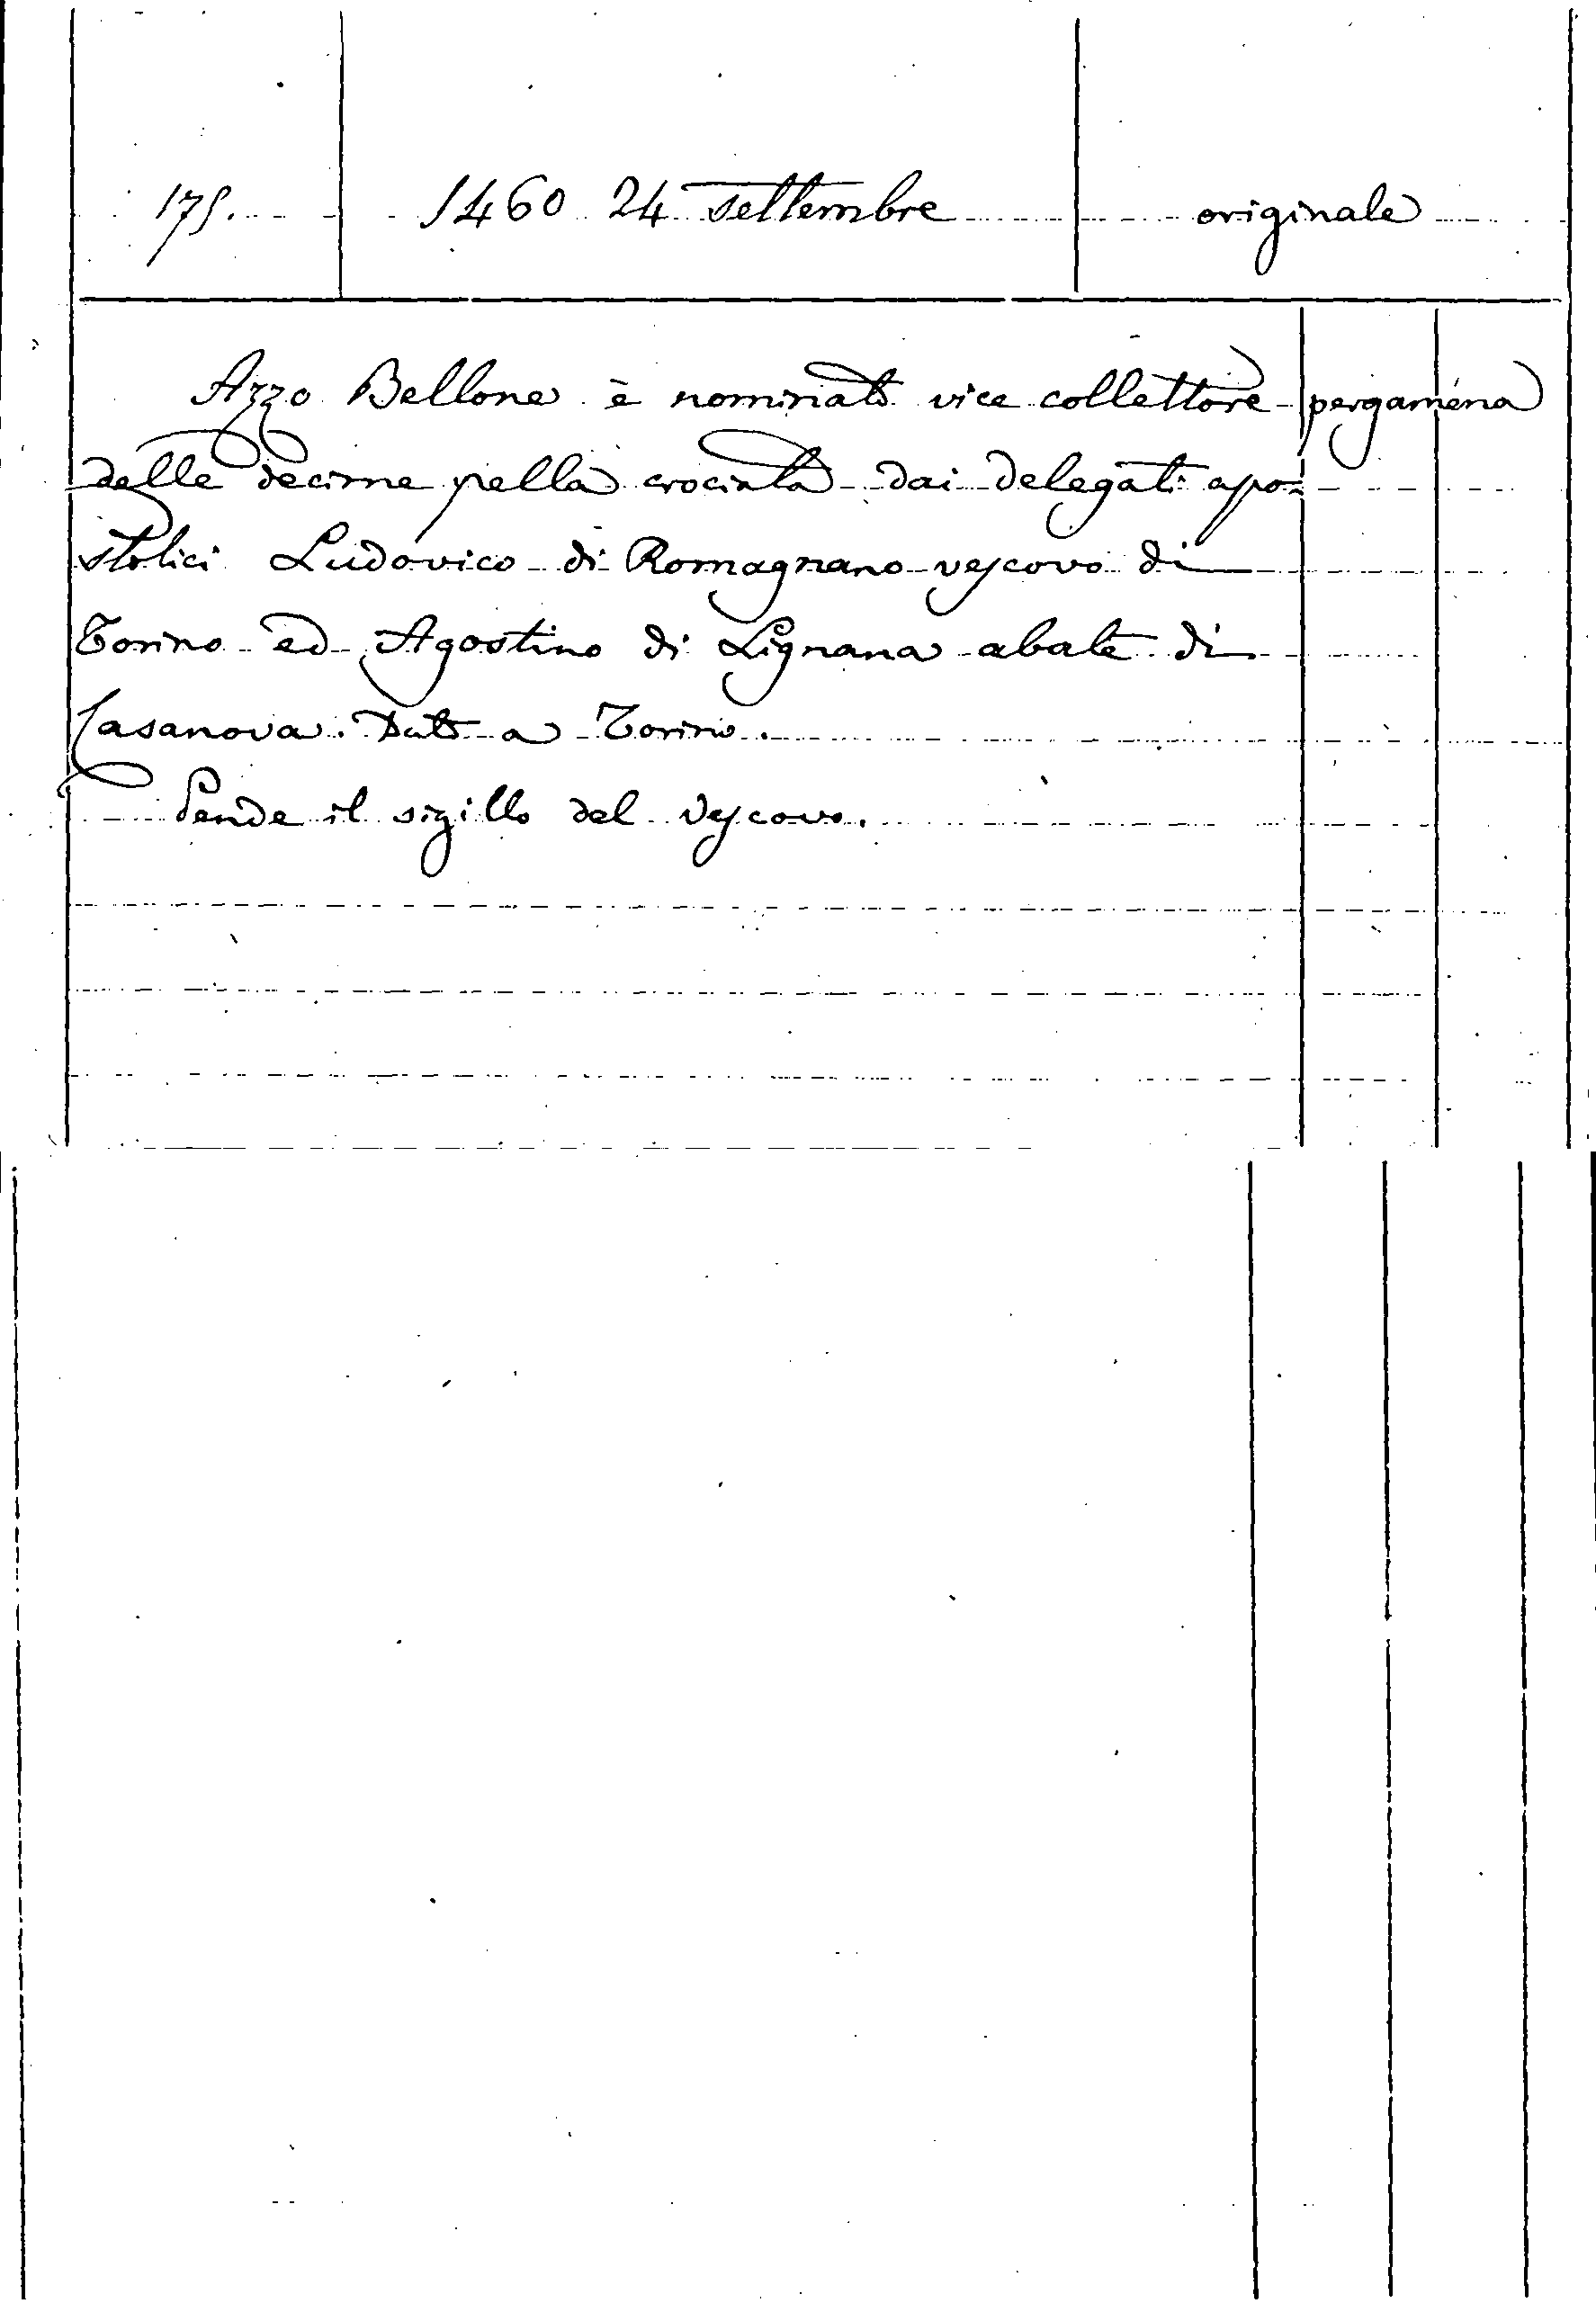 175. 1460 24 Settembre originale
Azzo Bellone è nominato vice collettore pergamena
delle decime pella crociata dai delegati apo-
stolici Ludovico di Romagnano vescovo di
Torino ed Agostino di Lignana abate di
Casanova. Dato a Torino.
Pende il sigillo del Vescovo.